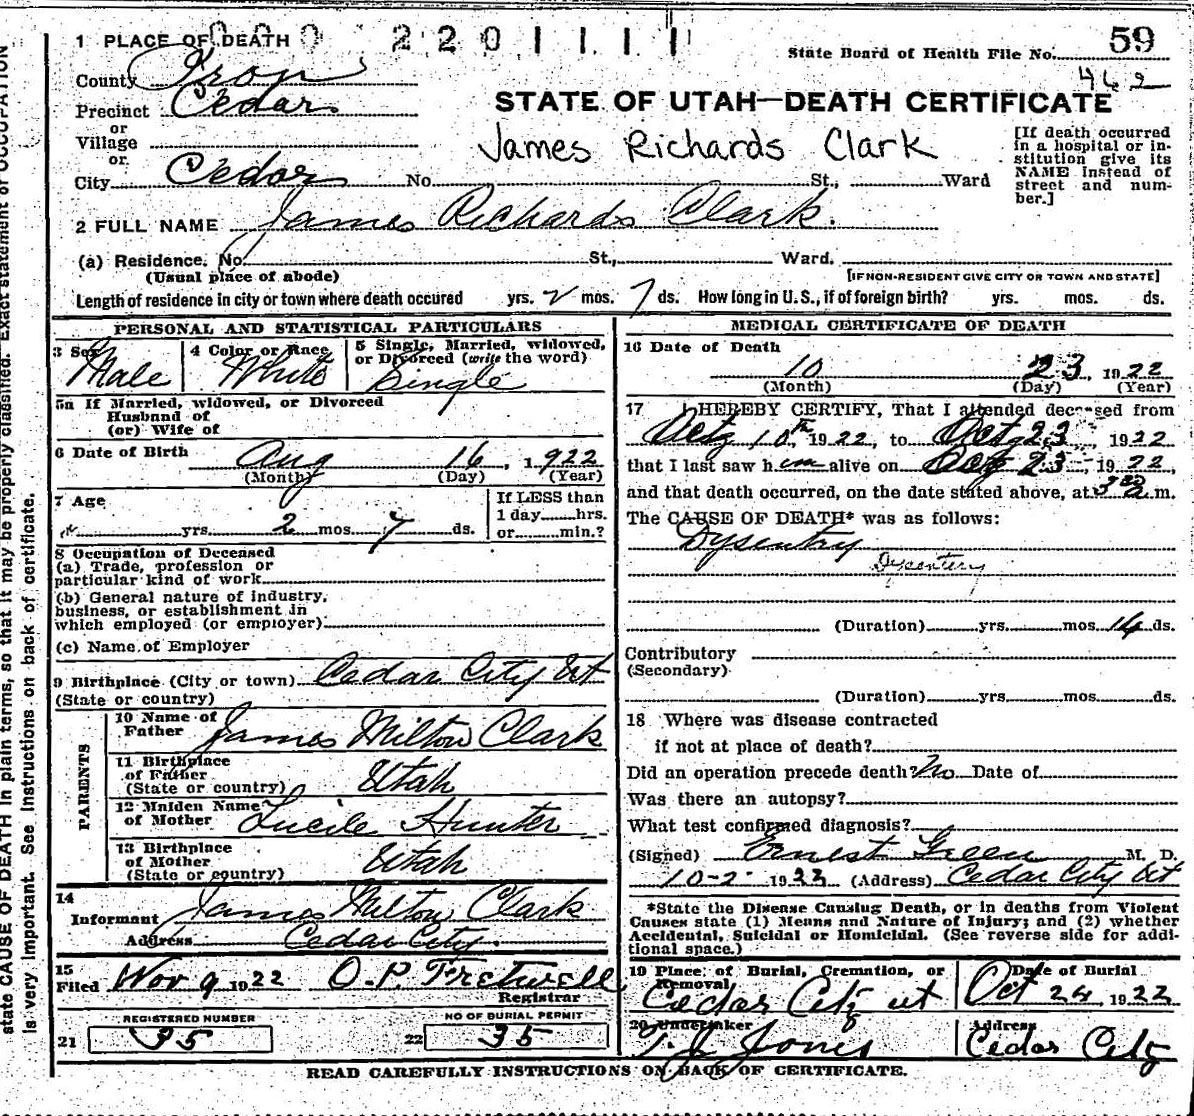 state CAUSE OF DEATH in plain terms, so that it may be properly classified. Exact statement of OCCUPATION
is very important. See instructions on back of certificate.
1 PLACE OF DEATH
2 2 0 1 1 1 1
State Board of Health File No. 59
462
County Iron
Precinct Cedar
STATE OF UTAH—DEATH CERTIFICATE
or
Village
or
City Cedar No. St., Ward
James Richards Clark
[If death occurred
in a hospital or in-
stitution give its
NAME instead of
street and num-
ber.]
2 FULL NAME James Richards Clark.
(a) Residence. No. St., Ward.
(Usual place of abode) [IF NON-RESIDENT GIVE CITY OR TOWN AND STATE]
Length of residence in city or town where death occured yrs. 2 mos. 7 ds. How long in U. S., if of foreign birth? yrs. mos. ds.
PERSONAL AND STATISTICAL PARTICULARS
3 Sex Male
4 Color or Race White
5 Single, Married, widowed,
or Divorced (write the word)
Single
5a If Married, widowed, or Divorced
Husband of
(or) Wife of
6 Date of Birth Aug 16, 1922
(Month) (Day) (Year)
7 Age
yrs. 2 mos. 7 ds.
If LESS than
1 day hrs.
or min.?
8 Occupation of Deceased
(a) Trade, profession or
particular kind of work
(b) General nature of industry,
business, or establishment in
which employed (or employer)
(c) Name of Employer
9 Birthplace (City or town) Cedar City Ut
(State or country)
PARENTS
10 Name of
Father James Milton Clark
11 Birthplace
of Father
(State or country) Utah
12 Maiden Name
of Mother Lucile Hunter
13 Birthplace
of Mother
(State or country) Utah
14
Informant James Milton Clark
Address Cedar City.
15
Filed Nov 9 1922 O. P. Fretwell
Registrar
REGISTERED NUMBER
21 35
NO OF BURIAL PERMIT
22 35
MEDICAL CERTIFICATE OF DEATH
16 Date of Death
10 23, 1922
(Month) (Day) (Year)
17 I HEREBY CERTIFY, That I attended deceased from
Oct 10th, 1922, to Oct 23, 1922
that I last saw him alive on Oct 23, 1922,
and that death occurred, on the date stated above, at 3 a m.
The CAUSE OF DEATH* was as follows:
Dysentry
Dysentery
(Duration) yrs. mos. 14 ds.
Contributory
(Secondary)
(Duration) yrs. mos. ds.
18 Where was disease contracted
if not at place of death?
Did an operation precede death? No Date of
Was there an autopsy?
What test confirmed diagnosis?
(Signed) Ernest Green M. D.
10-2 1922 (Address) Cedar City Ut
*State the Disease Causing Death, or in deaths from Violent
Causes state (1) Means and Nature of Injury; and (2) whether
Accidental, Suicidal or Homicidal. (See reverse side for addi-
tional space.)
19 Place of Burial, Cremation, or
Removal
Cedar City ut
Date of Burial
Oct 24, 1922
20 Undertaker
T. J. Jones
Address
Cedar City
READ CAREFULLY INSTRUCTIONS ON BACK OF CERTIFICATE.